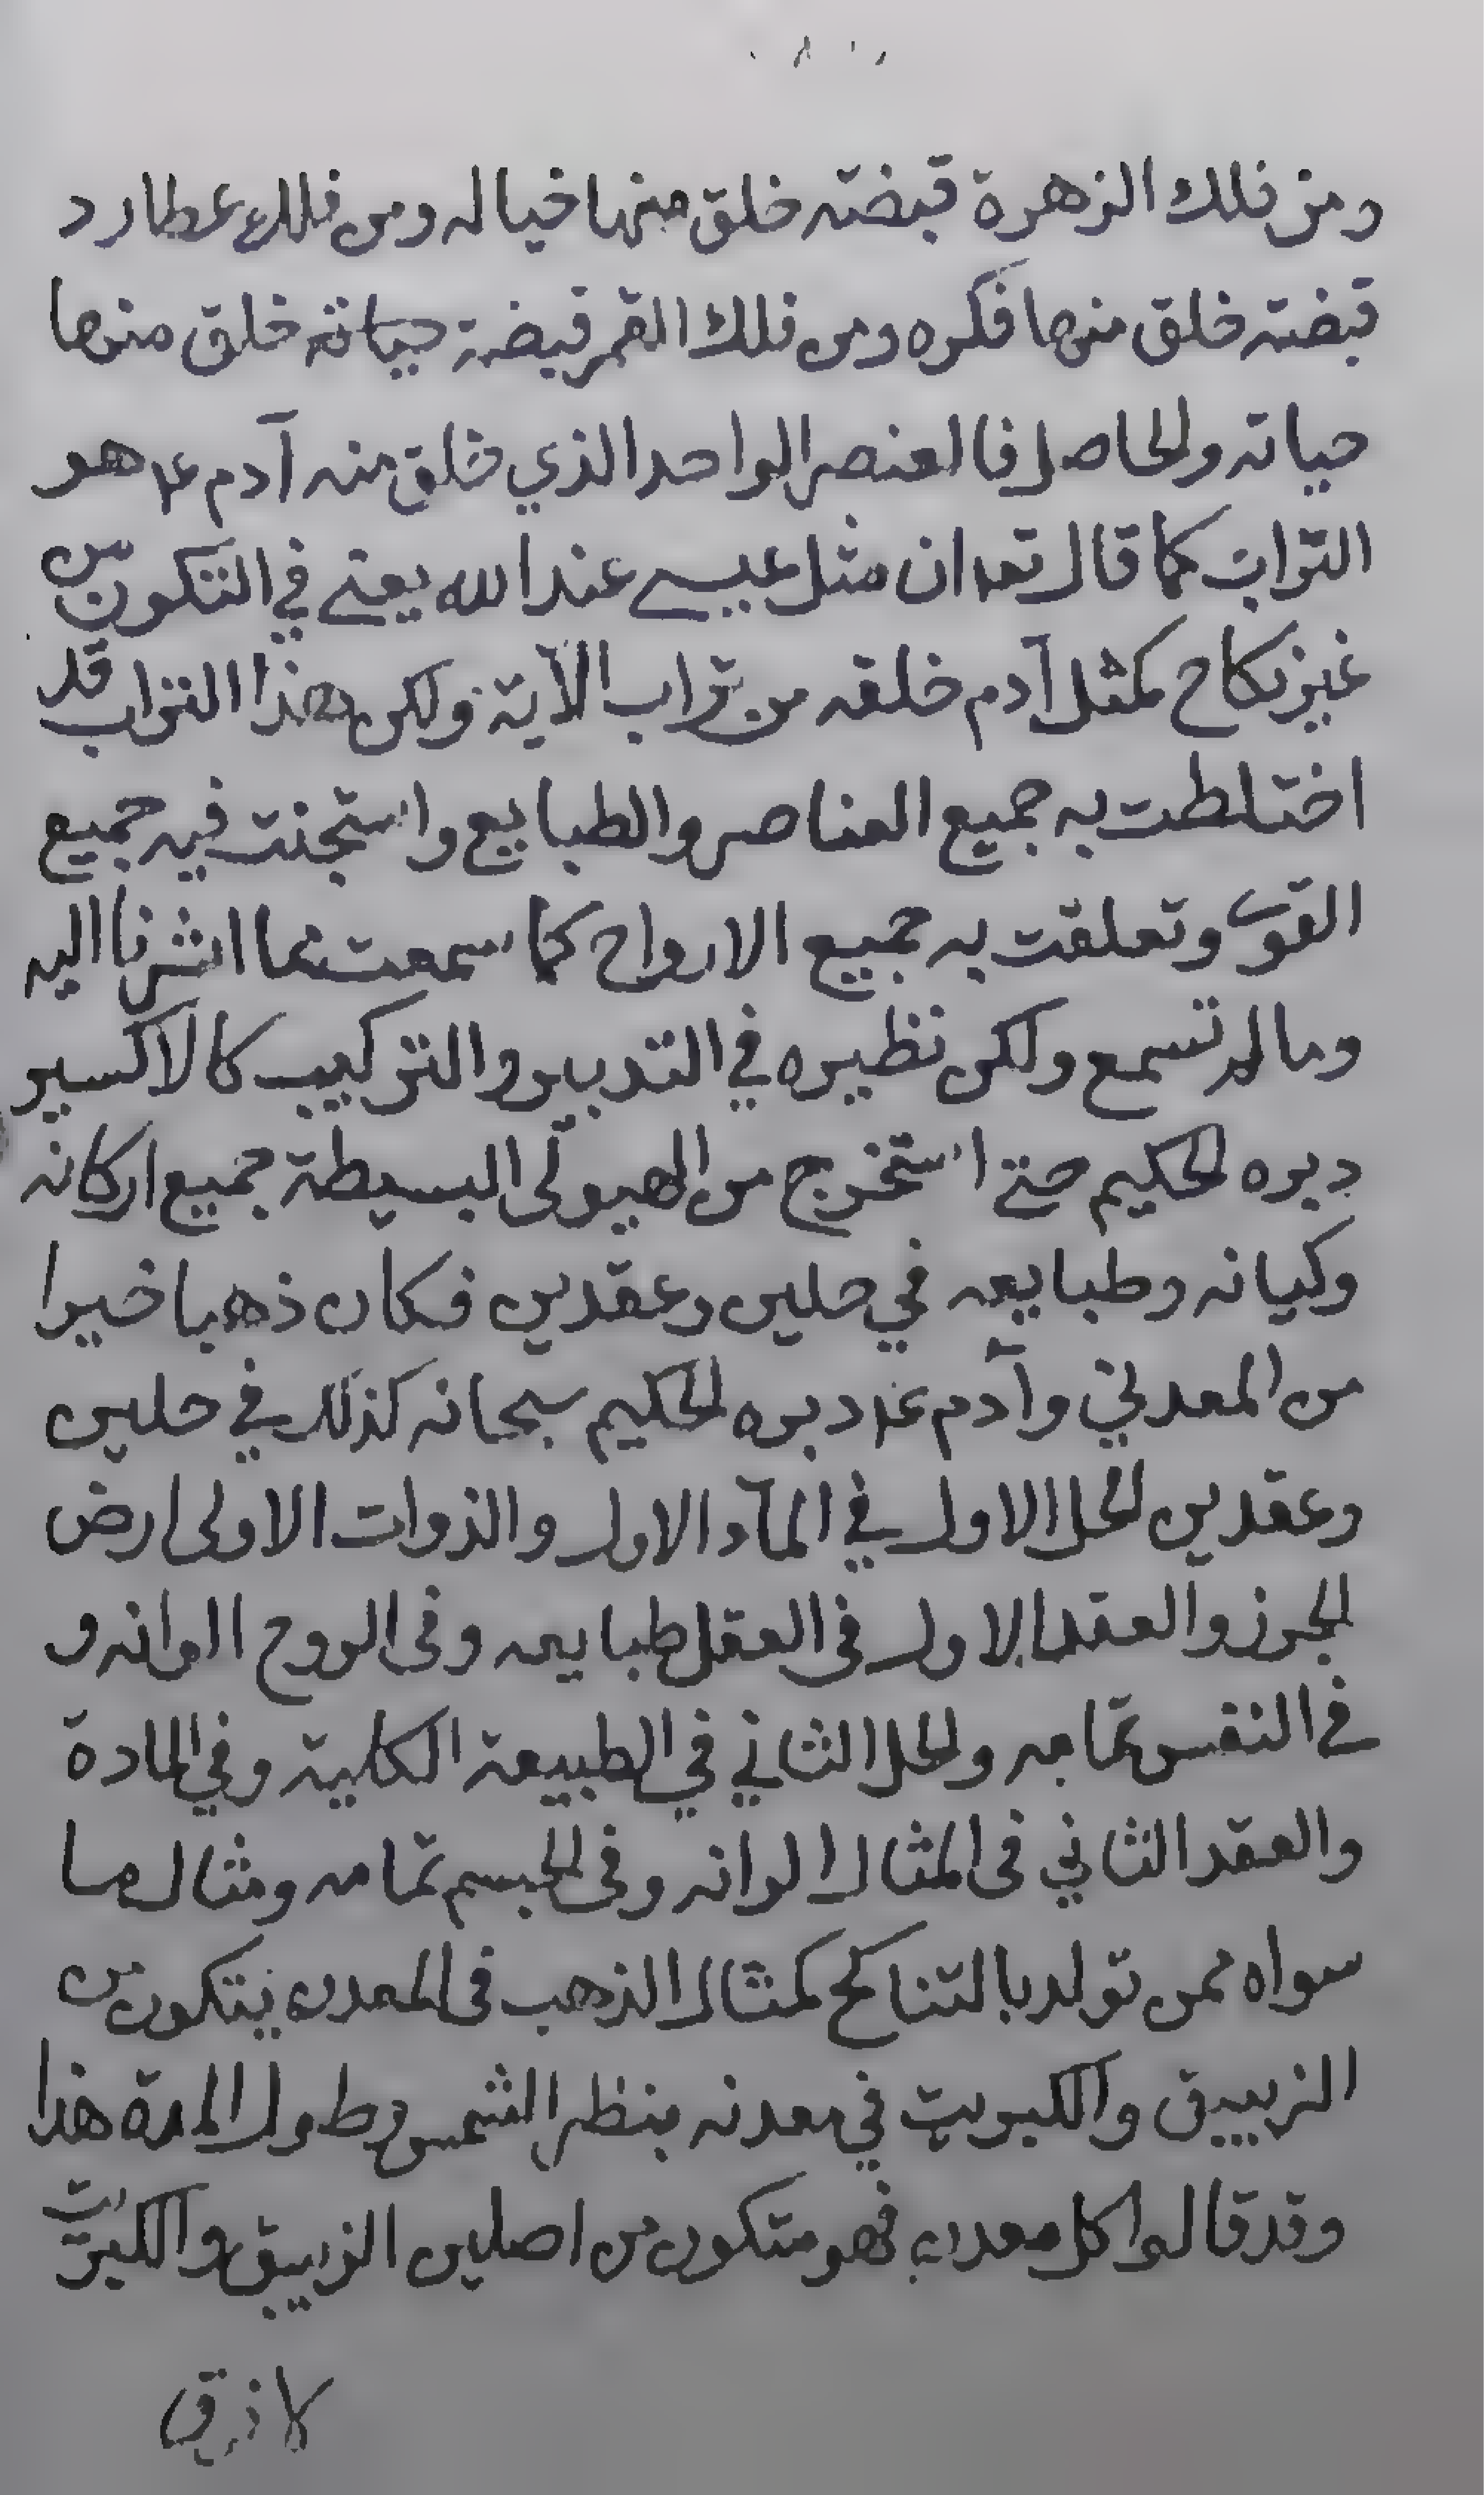 ومن فلك الزهرة قبضته خلق منها خياله ومن فلك عطارد
قبضته خلق منها فكره ومن فلك القمر قبضة حياته خلق منها
حياته والحاصل فالعنصر الواحد الذي خلق منه آدم ع هو
التراب كما قال تعا ان مثل عيسى عند الله يعني في التكون من
غير نكاح كمثل آدم خلقه من تراب الآية ولكن هذا التراب قد
اختلطت به جميع العناصر والطبايع واستجنت فيه جميع
القوى وتعلقت به جميع الارواح كما سمعت مما اشرنا اليه
وما لم تسمع ولكن نظيره في التدبير والتركيب كالاكسير
دبره الحكيم حتى استخرج من الهيولى البسيطة جميع اركانه
وكيانه وطبايعه في حلين وعقدين فكان ذهبا خيرا
من المعدني وآدم ع دبره الحكيم سبحانه كذلك في حلين
وعقدين الحل الاول في المآء الاول والذوات الاولى ارض
الجرز والعقد الاول في العقل طبايعه وفي الروح الوانه و
في النفس تمامه والحل الثاني في الطبيعة الكلية وفي المادة
والعقد الثاني في المثال الوانه وفي الجسم تمامه ومثال ما
سواه ممن تولد بالتناكح كمثال الذهب في المعدن يتكون من
الزيبق والكبريت في معدنه بنظر الشمس وطول المدة هذا
وقد قالوا كل معدن فهو متكون من اصلين الزيبق والكبريت